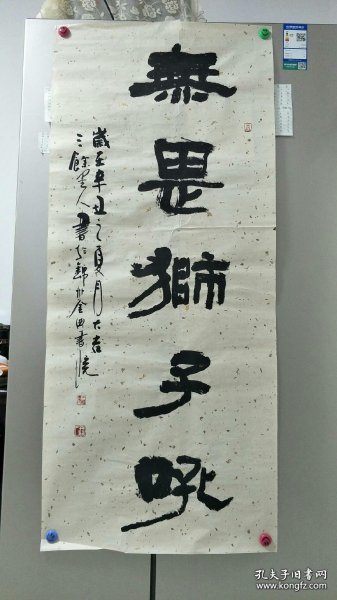 無畏獅子吼
歲在辛丑之夏月大吉
三餘堂人書於錦州金田書院
孔夫子旧书网
kongfz.com